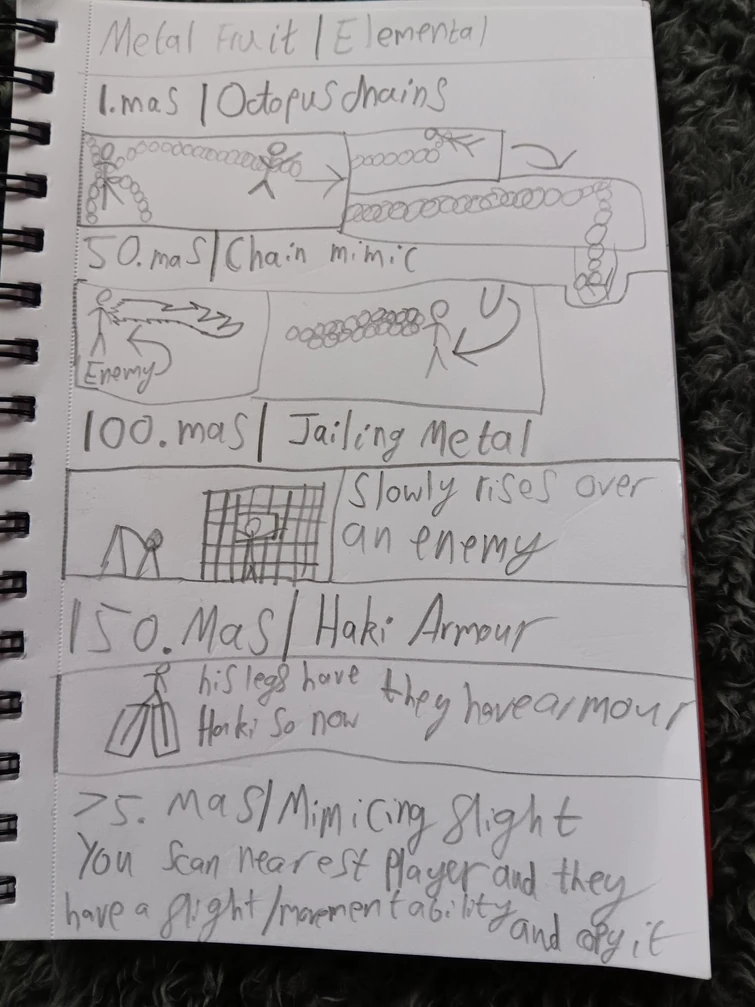 Metal Fruit | Elemental
1.mas | Octopus chains
50.mas | Chain mimic
Enemy
100.mas | Jailing Metal
Slowly rises over
an enemy
150.Mas | Haki Armour
his legs have
Haki so now
they have armour
75. Mas | Mimicing flight
You scan nearest player and they
have a flight/movement ability and copy it